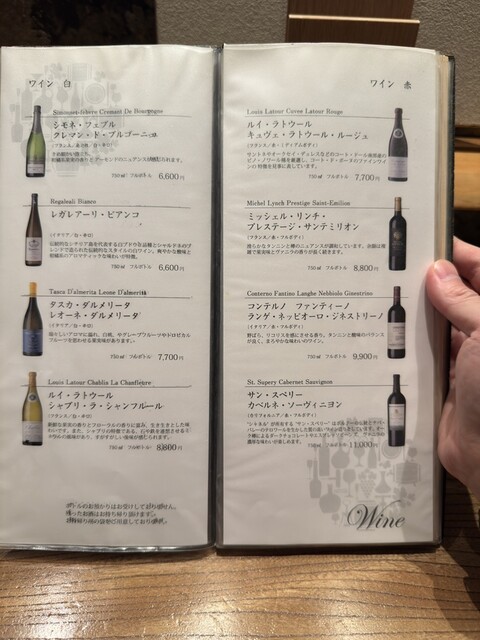 ワイン 白
Simonnet-febvre Cremant De Bourgogne
シモネ・フェブル
クレマン・ド・ブルゴーニュ
750㎖ フルボトル 6,600円
Regaleali Bianco
レガレアーリ・ビアンコ
(イタリア/白・辛口)
750㎖ フルボトル 6,600円
Tasca D'almerita Leone D'almerita
タスカ・ダルメリータ
レオーネ・ダルメリータ
(イタリア/白・辛口)
瑞々しいアロマに溢れ、白桃、やグレープフルーツやトロピカル
フルーツを思わせる果実味があります。
750㎖ フルボトル 7,700円
Louis Latour Chablis La Chanfleure
ルイ・ラトゥール
シャブリ・ラ・シャンフルール
(フランス/白・辛口)
750㎖ フルボトル 8,800円
ボトルのお預かりはお受けしておりません。
残ったお酒はお持ち帰り頂けます。
お持帰り用の袋をご用意しております。
ワイン 赤
Louis Latour Cuvee Latour Rouge
ルイ・ラトゥール
キュヴェ・ラトゥール・ルージュ
(フランス/赤・ミディアムボディ)
750㎖ フルボトル 7,700円
Michel Lynch Prestige Saint-Emilion
ミッシェル・リンチ・
プレステージ・サンテミリオン
(フランス/赤・フルボディ)
750㎖ フルボトル 8,800円
Conterno Fantino Langhe Nebbiolo Ginestrino
コンテルノ ファンティーノ
ランゲ・ネッビオーロ・ジネストリーノ
(イタリア/赤・フルボディ)
野ばら、リコリスを感じさせる香り。タンニンと酸味のバランス
が良く、まろやかな味わいのワイン。
750㎖ フルボトル 9,900円
St. Supery Cabernet Sauvignon
サン・スペリー
カベルネ・ソーヴィニヨン
(カリフォルニア/赤・フルボディ)
750㎖ フルボトル 11,000円
Wine